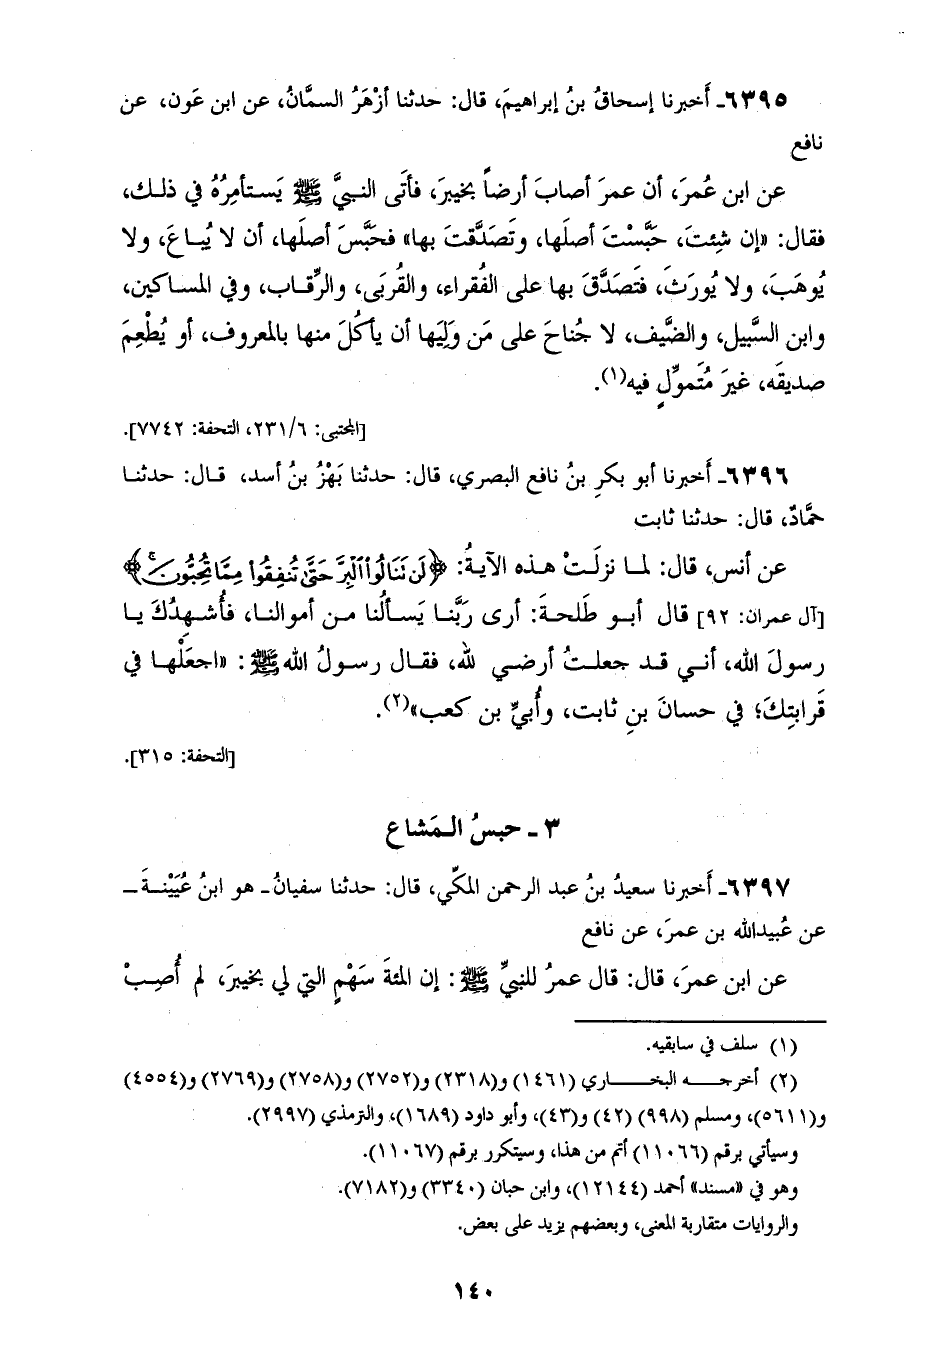 ٦٣٩٥ـ أَخبرنا إسحاقُ بنُ إبراهيمَ، قال: حدثنا أزْهَرُ السمَّانُ، عن ابن عَون، عن
نافع
عن ابن عُمرَ، أن عمرَ أصابَ أرضاً بخيبرَ، فأتَى النبيَّ ﷺ يَستأمِرُهُ في ذلك،
فقال: «إن شِئتَ، حَبَّسْتَ أصلَها، وتَصدَّقتَ بها» فحَبَّسَ أصلَها، أن لا يُباعَ، ولا
يُوهَبَ، ولا يُورَثَ، فتَصدَّقَ بها على الفُقراءِ، والقُربَى، والرِّقاب، وفي المساكين،
وابن السَّبيل، والضَّيف، لا جُناحَ على مَن وَلِيَها أن يأكُلَ منها بالمعروف، أو يُطْعِمَ
صديقَه، غيرَ مُتَموِّلٍ فيه(١).
[المجتبى: ٢٣١/٦، التحفة: ٧٧٤٢].
٦٣٩٦ـ أَخبرنا أبو بكرِ بنُ نافع البصري، قال: حدثنا بَهْزُ بنُ أسد، قال: حدثنا
حمَّادٌ، قال: حدثنا ثابت
عن أنس، قال: لما نزلَتْ هذه الآيةُ: ﴿لَن نَنَالُوا۟ ٱلْبِرَّ حَتَّىٰ تُنفِقُوا۟ مِمَّا تُحِبُّونَ ۚ﴾
[آل عمران: ٩٢] قال أبو طَلحةَ: أرى ربَّنا يَسألُنا من أموالنا، فأُشهِدُكَ يا
رسولَ الله، أني قد جعلتُ أرضي لله، فقال رسولُ الله ﷺ: «اجعَلْها في
قَرابتِكَ؛ في حسانَ بنِ ثابت، وأُبيِّ بن كعب»(٢).
[التحفة: ٣١٥].
٣ ـ حبسُ المَشاع
٦٣٩٧ـ أَخبرنا سعيدُ بنُ عبد الرحمن المكِّي، قال: حدثنا سفيانُ ـ هو ابنُ عُيَيْنةَ ـ
عن عُبيدالله بن عمرَ، عن نافع
عن ابن عمرَ، قال: قال عمرُ للنبيِّ ﷺ: إن المئةَ سَهْمٍ التي لي بخيبرَ، لم أُصِبْ
(١) سلف في سابقيه.
(٢) أخرجه البخاري (١٤٦١) و(٢٣١٨) و(٢٧٥٢) و(٢٧٥٨) و(٢٧٦٩) و(٤٥٥٤)
و(٥٦١١)، ومسلم (٩٩٨) (٤٢) و(٤٣)، وأبو داود (١٦٨٩)، والترمذي (٢٩٩٧).
وسيأتي برقم (١١٠٦٦) أتم من هذا، وسيتكرر برقم (١١٠٦٧).
وهو في «مسند» أحمد (١٢١٤٤)، وابن حبان (٣٣٤٠) و(٧١٨٢).
والروايات متقاربة المعنى، وبعضهم يزيد على بعض.
١٤٠